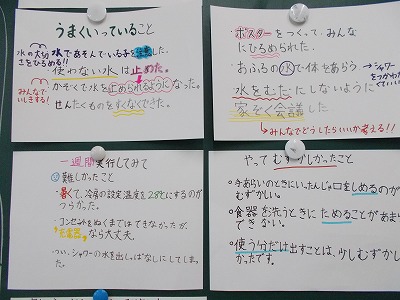 うまくいっていること
水の大切さをひろめる!!
水であそんでいる子を注意した
使わない水は止めた。
みんなでいしきする!
かぞくで水を止められるようになった。
せんたくものをすくなくできた。
ポスターをつくって、みんなにひろめられた。
おふろの水で体をあらう
→シャワーをつかわない
水をむだにしないように
家ぞく会議した
→みんなでどうしたらいいか考える!!
一週間実行してみて
難しかったこと
・暑くて、冷房の設定温度を28℃にするのがつらかった。
・コンセントをぬくまではできなかったが、
充電器なら大丈夫。
・つい、シャワーの水を出しっぱなしにしてしまった。
やってむずかしかったこと
・手あらいのときにいったんじゃ口をしめるのがむずかしい。
・食器お洗うときにためることがあまりできない。
・使う分だけ出すことは、少しむずかしかったです。